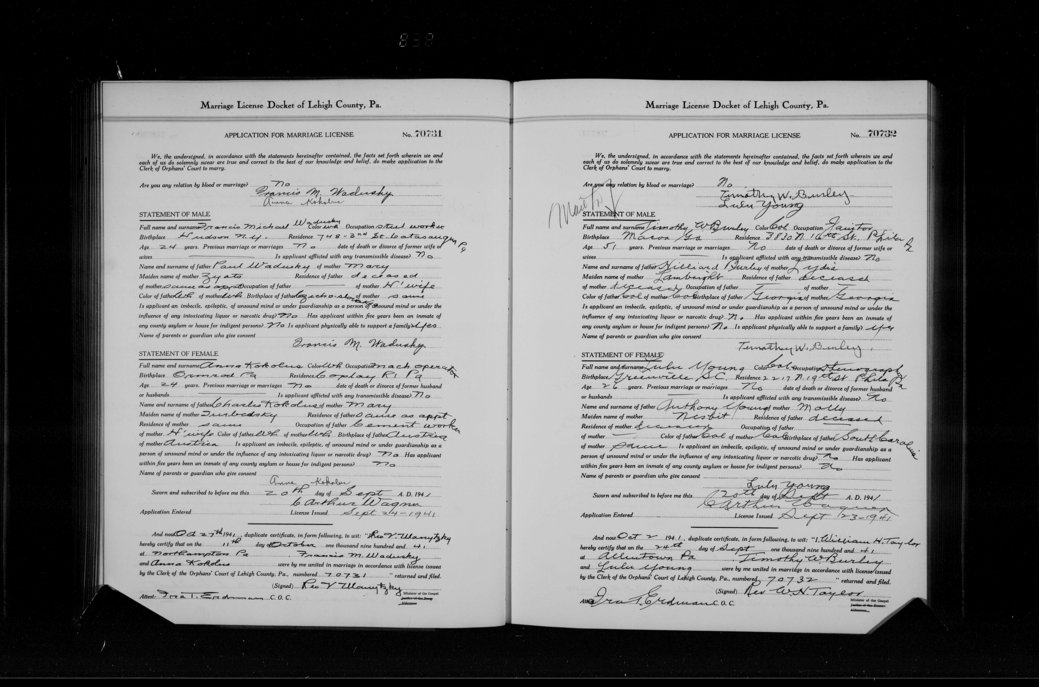 838
Marriage License Docket of Lehigh County, Pa.
APPLICATION FOR MARRIAGE LICENSE No. 70731
We, the undersigned, in accordance with the statements hereinafter contained, the facts set forth wherein we and
each of us do solemnly swear are true and correct to the best of our knowledge and belief, do make application to the
Clerk of Orphans' Court to marry.
Are you any relation by blood or marriage? No
Francis M. Wadusky
Anna Kokolus
STATEMENT OF MALE
Full name and surname Francis Michael Wadusky Color Wh Occupation Steel worker
Birthplace Hudson N.Y. Residence 748-2nd St. Catasauqua Pa
Age 24 years. Previous marriage or marriages No date of death or divorce of former wife or
wives Is applicant afflicted with any transmissible disease? No
Name and surname of father Paul Wadusky of mother Mary
Maiden name of mother Residence of father deceased
of mother same as appt Occupation of father of mother H'wife
Color of father Wh of mother Wh Birthplace of father Czechoslovakia of mother same
Is applicant an imbecile, epileptic, of unsound mind or under guardianship as a person of unsound mind or under the
influence of any intoxicating liquor or narcotic drug? No Has applicant within five years been an inmate of
any county asylum or house for indigent persons? No Is applicant physically able to support a family? yes
Name of parents or guardian who give consent
Francis M. Wadusky
STATEMENT OF FEMALE
Full name and surname Anna Kokolus Color Wh Occupation Mach operator
Birthplace Ormrod Pa Residence Coplay R1 Pa
Age 24 years. Previous marriage or marriages No date of death or divorce of former husband
or husbands Is applicant afflicted with any transmissible disease? No
Name and surname of father Charles Kokolus of mother Mary
Maiden name of mother Residence of father same as appt
Residence of mother same Occupation of father Cement worker
of mother H'wife Color of father Wh of mother Wh Birthplace of father Austria
of mother Austria Is applicant an imbecile, epileptic, of unsound mind or under guardianship as a
person of unsound mind or under the influence of any intoxicating liquor or narcotic drug? No Has applicant
within five years been an inmate of any county asylum or house for indigent persons? No
Name of parents or guardian who give consent
Anna Kokolus
Sworn and subscribed to before me this 20th day of Sept A. D. 1941
C Arthur Wagner
Application Entered License Issued Sept 24-1941
And now Oct 27th 1941, duplicate certificate, in form following, to wit: "I
hereby certify that on the 11th day of October one thousand nine hundred and 41
at Northampton Pa Francis M Wadusky
and Anna Kokolus were by me united in marriage in accordance with license issued
by the Clerk of the Orphans' Court of Lehigh County, Pa., numbered 70731 " returned and filed.
(Signed) Rev V Minister of the Gospel
Attest: Ira T. Erdman C. O. C.
Marriage License Docket of Lehigh County, Pa.
APPLICATION FOR MARRIAGE LICENSE No. 70732
We, the undersigned, in accordance with the statements hereinafter contained, the facts set forth wherein we and
each of us do solemnly swear are true and correct to the best of our knowledge and belief, do make application to the
Clerk of Orphans' Court to marry.
Are you any relation by blood or marriage? No
Timothy W. Burley
Lulu Young
STATEMENT OF MALE
Full name and surname Timothy W Burley Color Col Occupation Janitor
Birthplace Macon Ga Residence 3820 N. 16th St. Phila Pa
Age 51 years. Previous marriage or marriages No date of death or divorce of former wife or
wives Is applicant afflicted with any transmissible disease? No
Name and surname of father Hilliard Burley of mother Lydia
Maiden name of mother Lambright Residence of father deceased
of mother deceased Occupation of father of mother
Color of father Col of mother Col Birthplace of father Georgia of mother Georgia
Is applicant an imbecile, epileptic, of unsound mind or under guardianship as a person of unsound mind or under the
influence of any intoxicating liquor or narcotic drug? No Has applicant within five years been an inmate of
any county asylum or house for indigent persons? No Is applicant physically able to support a family? yes
Name of parents or guardian who give consent
Timothy W. Burley
STATEMENT OF FEMALE
Full name and surname Lulu Young Color Col Occupation Stenograph
Birthplace Greenville S.C. Residence 2217 N. 19th St Phila Pa
Age 26 years. Previous marriage or marriages No date of death or divorce of former husband
or husbands Is applicant afflicted with any transmissible disease? No
Name and surname of father Anthony Young of mother Molly
Maiden name of mother Nesbit Residence of father deceased
Residence of mother deceased Occupation of father
of mother Color of father Col of mother Col Birthplace of father South Carolina
of mother same Is applicant an imbecile, epileptic, of unsound mind or under guardianship as a
person of unsound mind or under the influence of any intoxicating liquor or narcotic drug? No Has applicant
within five years been an inmate of any county asylum or house for indigent persons? No
Name of parents or guardian who give consent
Lulu Young
Sworn and subscribed to before me this 20th day of Sept A. D. 1941
C Arthur Wagner
Application Entered License Issued Sept 23-1941
And now Oct 2 1941, duplicate certificate, in form following, to wit: "I, William H. Taylor
hereby certify that on the 24th day of Sept one thousand nine hundred and 41
at Allentown Pa Timothy W Burley
and Lulu Young were by me united in marriage in accordance with license issued
by the Clerk of the Orphans' Court of Lehigh County, Pa., numbered 70732 " returned and filed.
(Signed) Rev W H Taylor Minister of the Gospel
Attest Ira T. Erdman C. O. C.